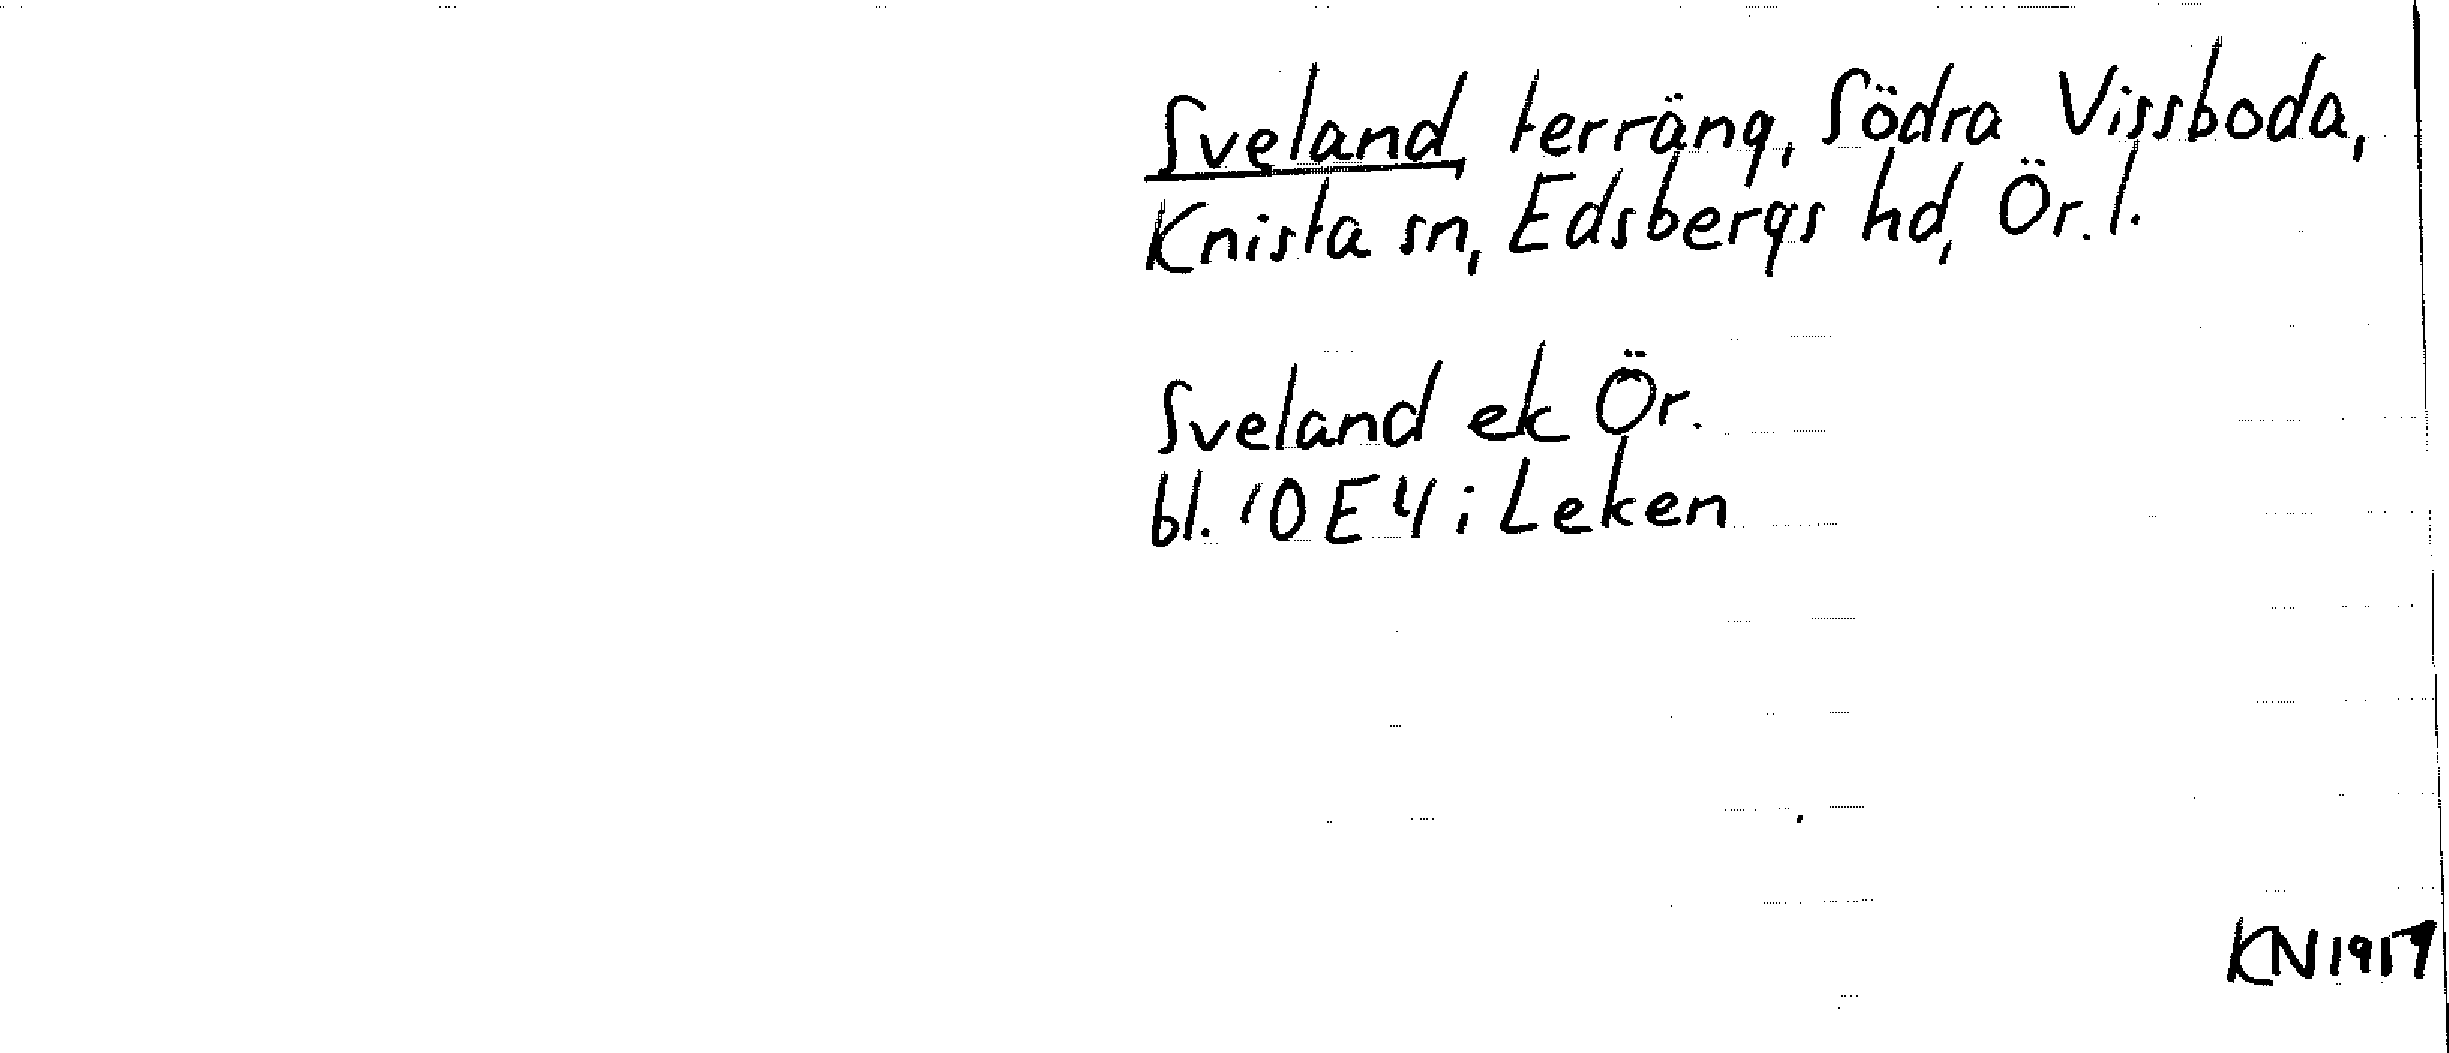 Sveland, terräng, Södra Vissboda,
Knista sn, Edsbergs hd, Ör. l.
Sveland ek Ör.
bl. 10 E 4 i Leken
KN 1917